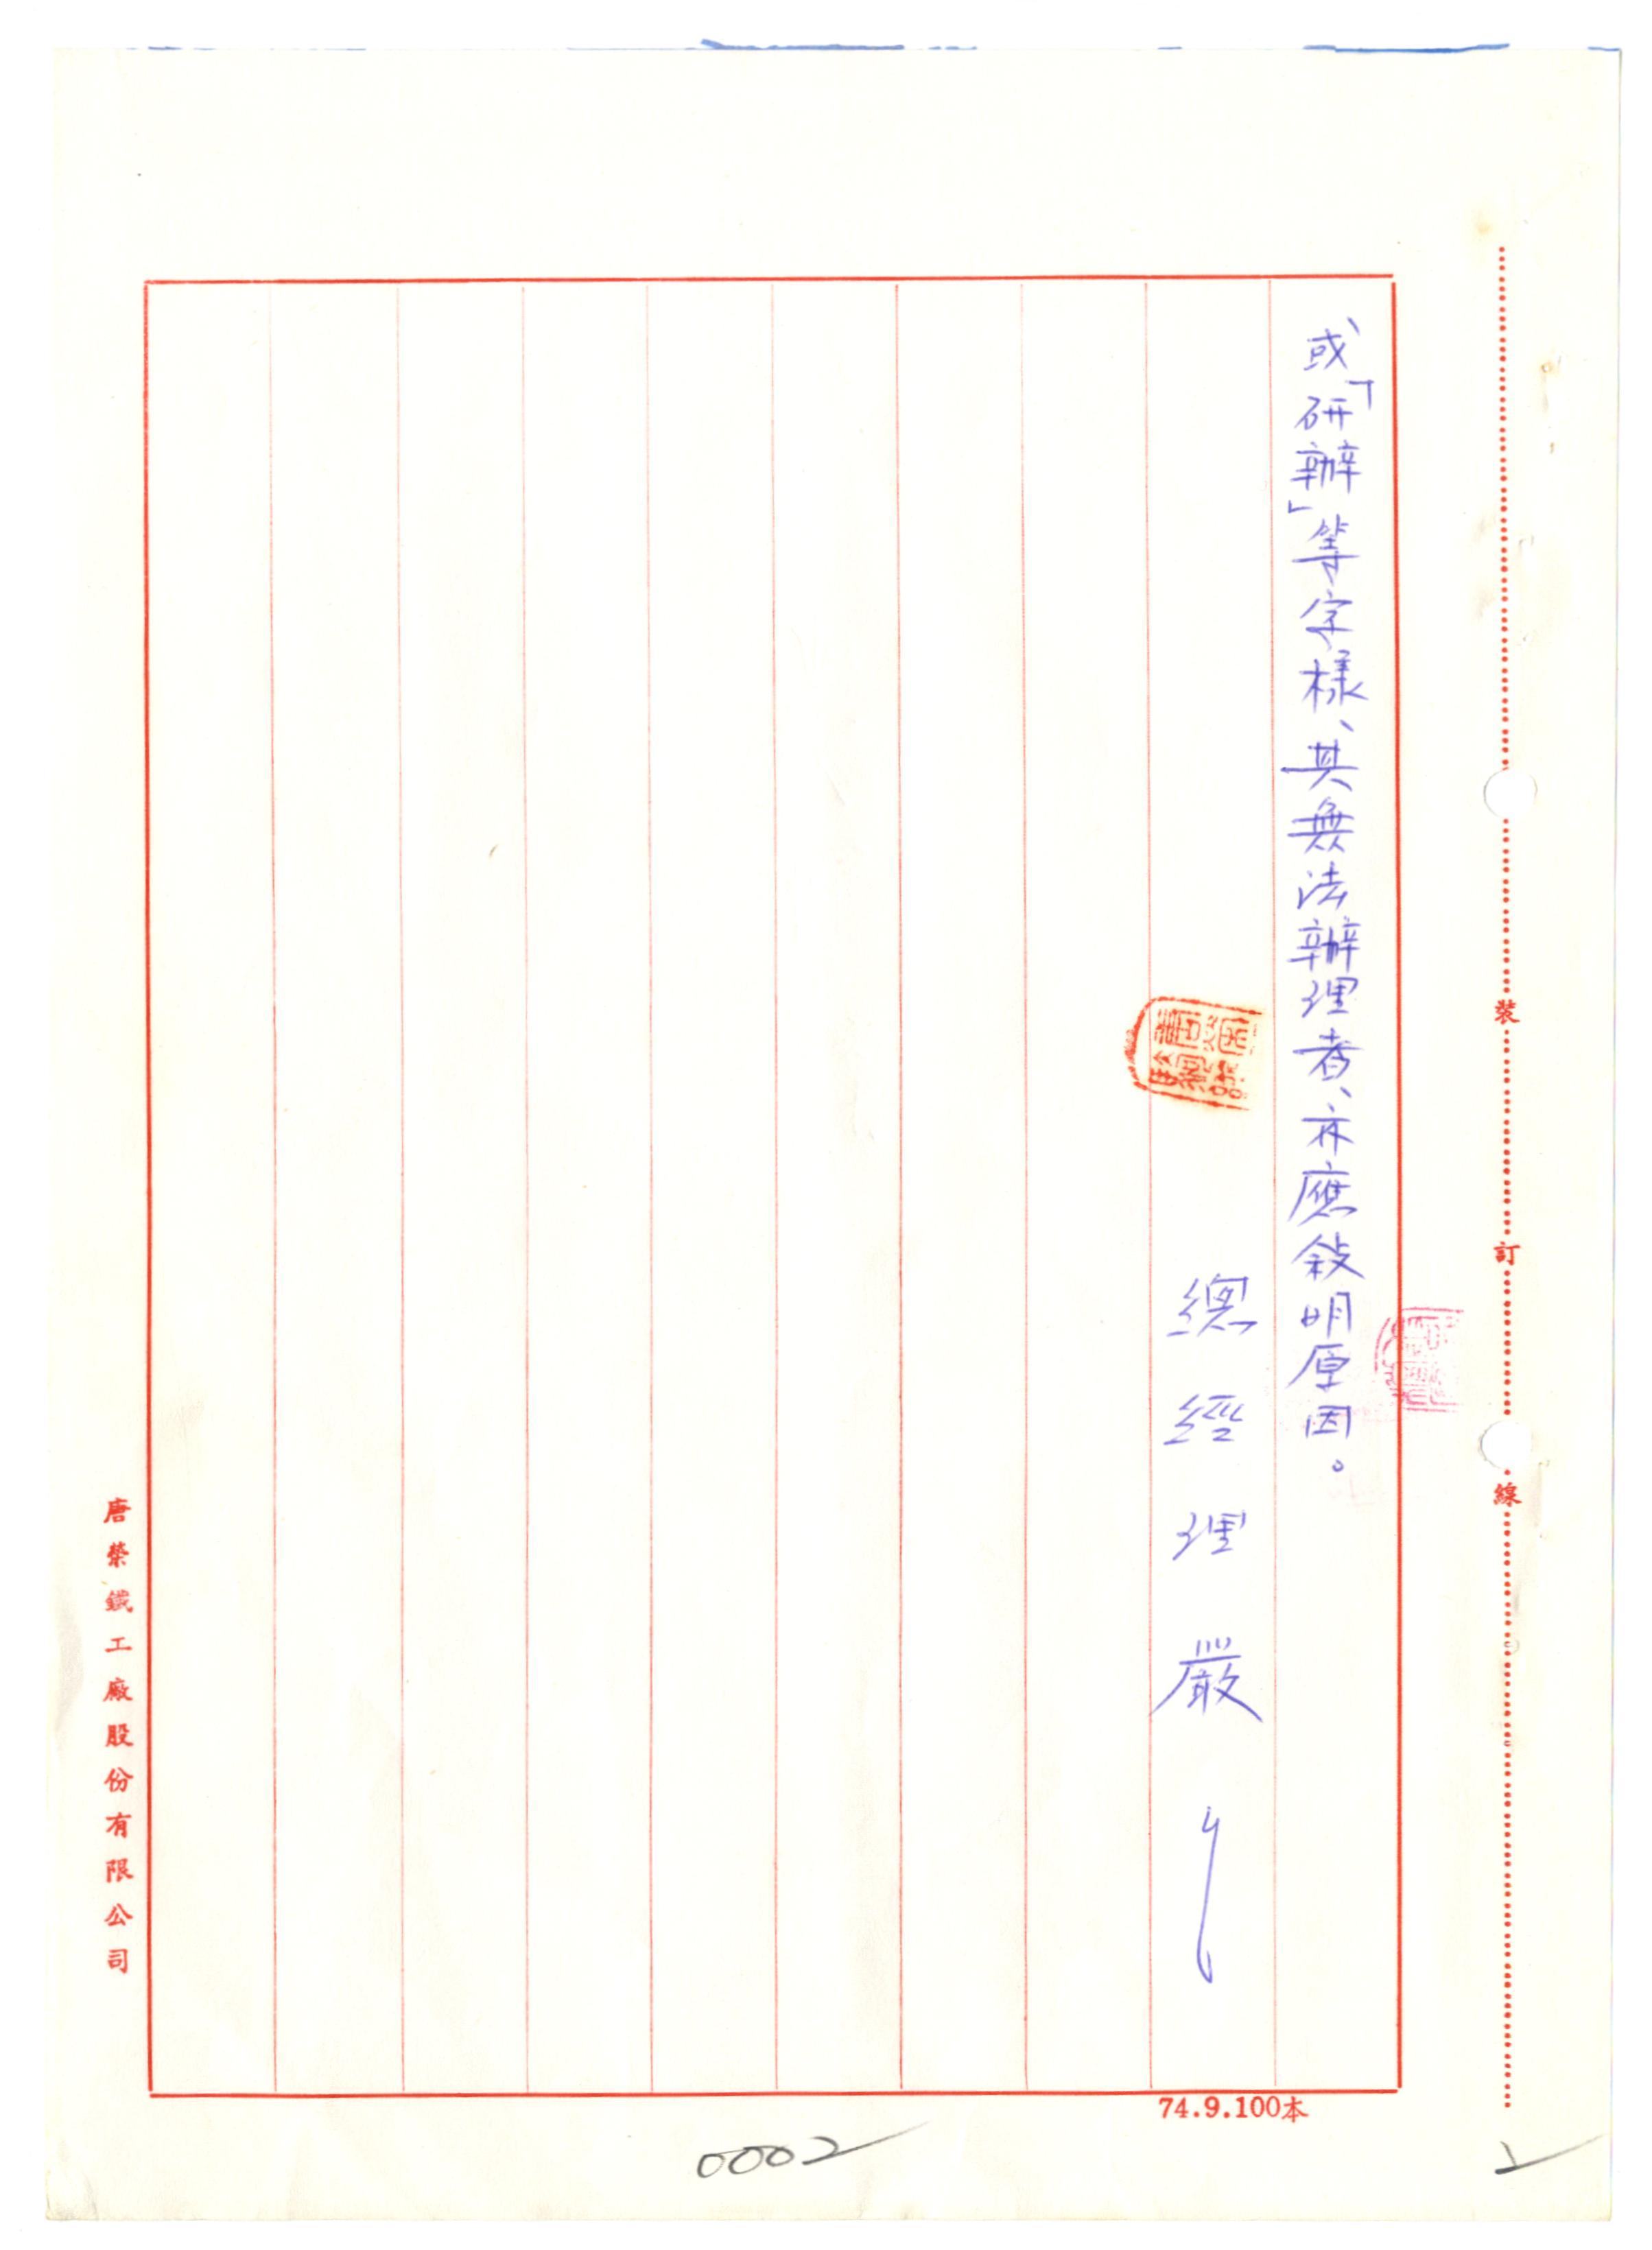 或「研辦」等字樣、其無法辦理者、亦應敍明原因。
總經理嚴
裝訂線
唐榮鐵工廠股份有限公司
74.9.100本
0002